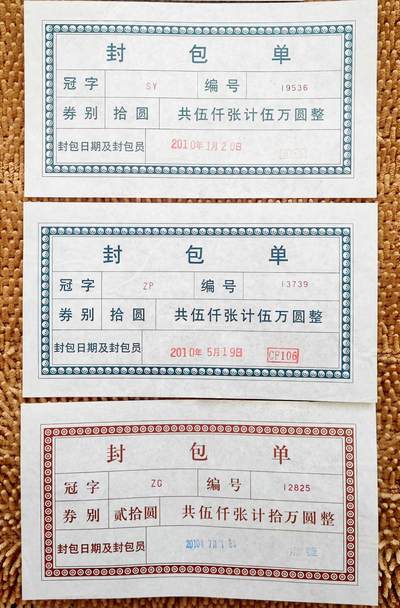 封包单
冠字 SY 编号 19536
券别 拾圆 共伍仟张计伍万圆整
封包日期及封包员 2010年1月20日
封包单
冠字 ZP 编号 13739
券别 拾圆 共伍仟张计伍万圆整
封包日期及封包员 2010年5月19日 CF106
封包单
冠字 ZG 编号 12825
券别 贰拾圆 共伍仟张计拾万圆整
封包日期及封包员